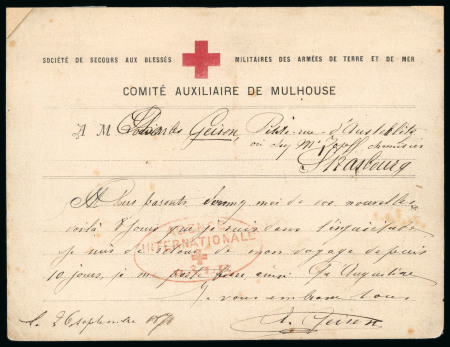 SOCIÉTÉ DE SECOURS AUX BLESSÉS MILITAIRES DES ARMÉES DE TERRE ET DE MER
COMITÉ AUXILIAIRE DE MULHOUSE
A M Geison, Petite rue d'Austerlitz
ou chez Mr chemisier
Strasbourg
Chers parents, donnez moi de vos nouvelles
voilà 8 jours que je suis dans l'inquiétude
je suis de retour de mon voyage depuis
10 jours, je me porte bien ainsi
INTERNATIONALE
Je vous embrasse tous
le 26 septembre 1870
A. Geison